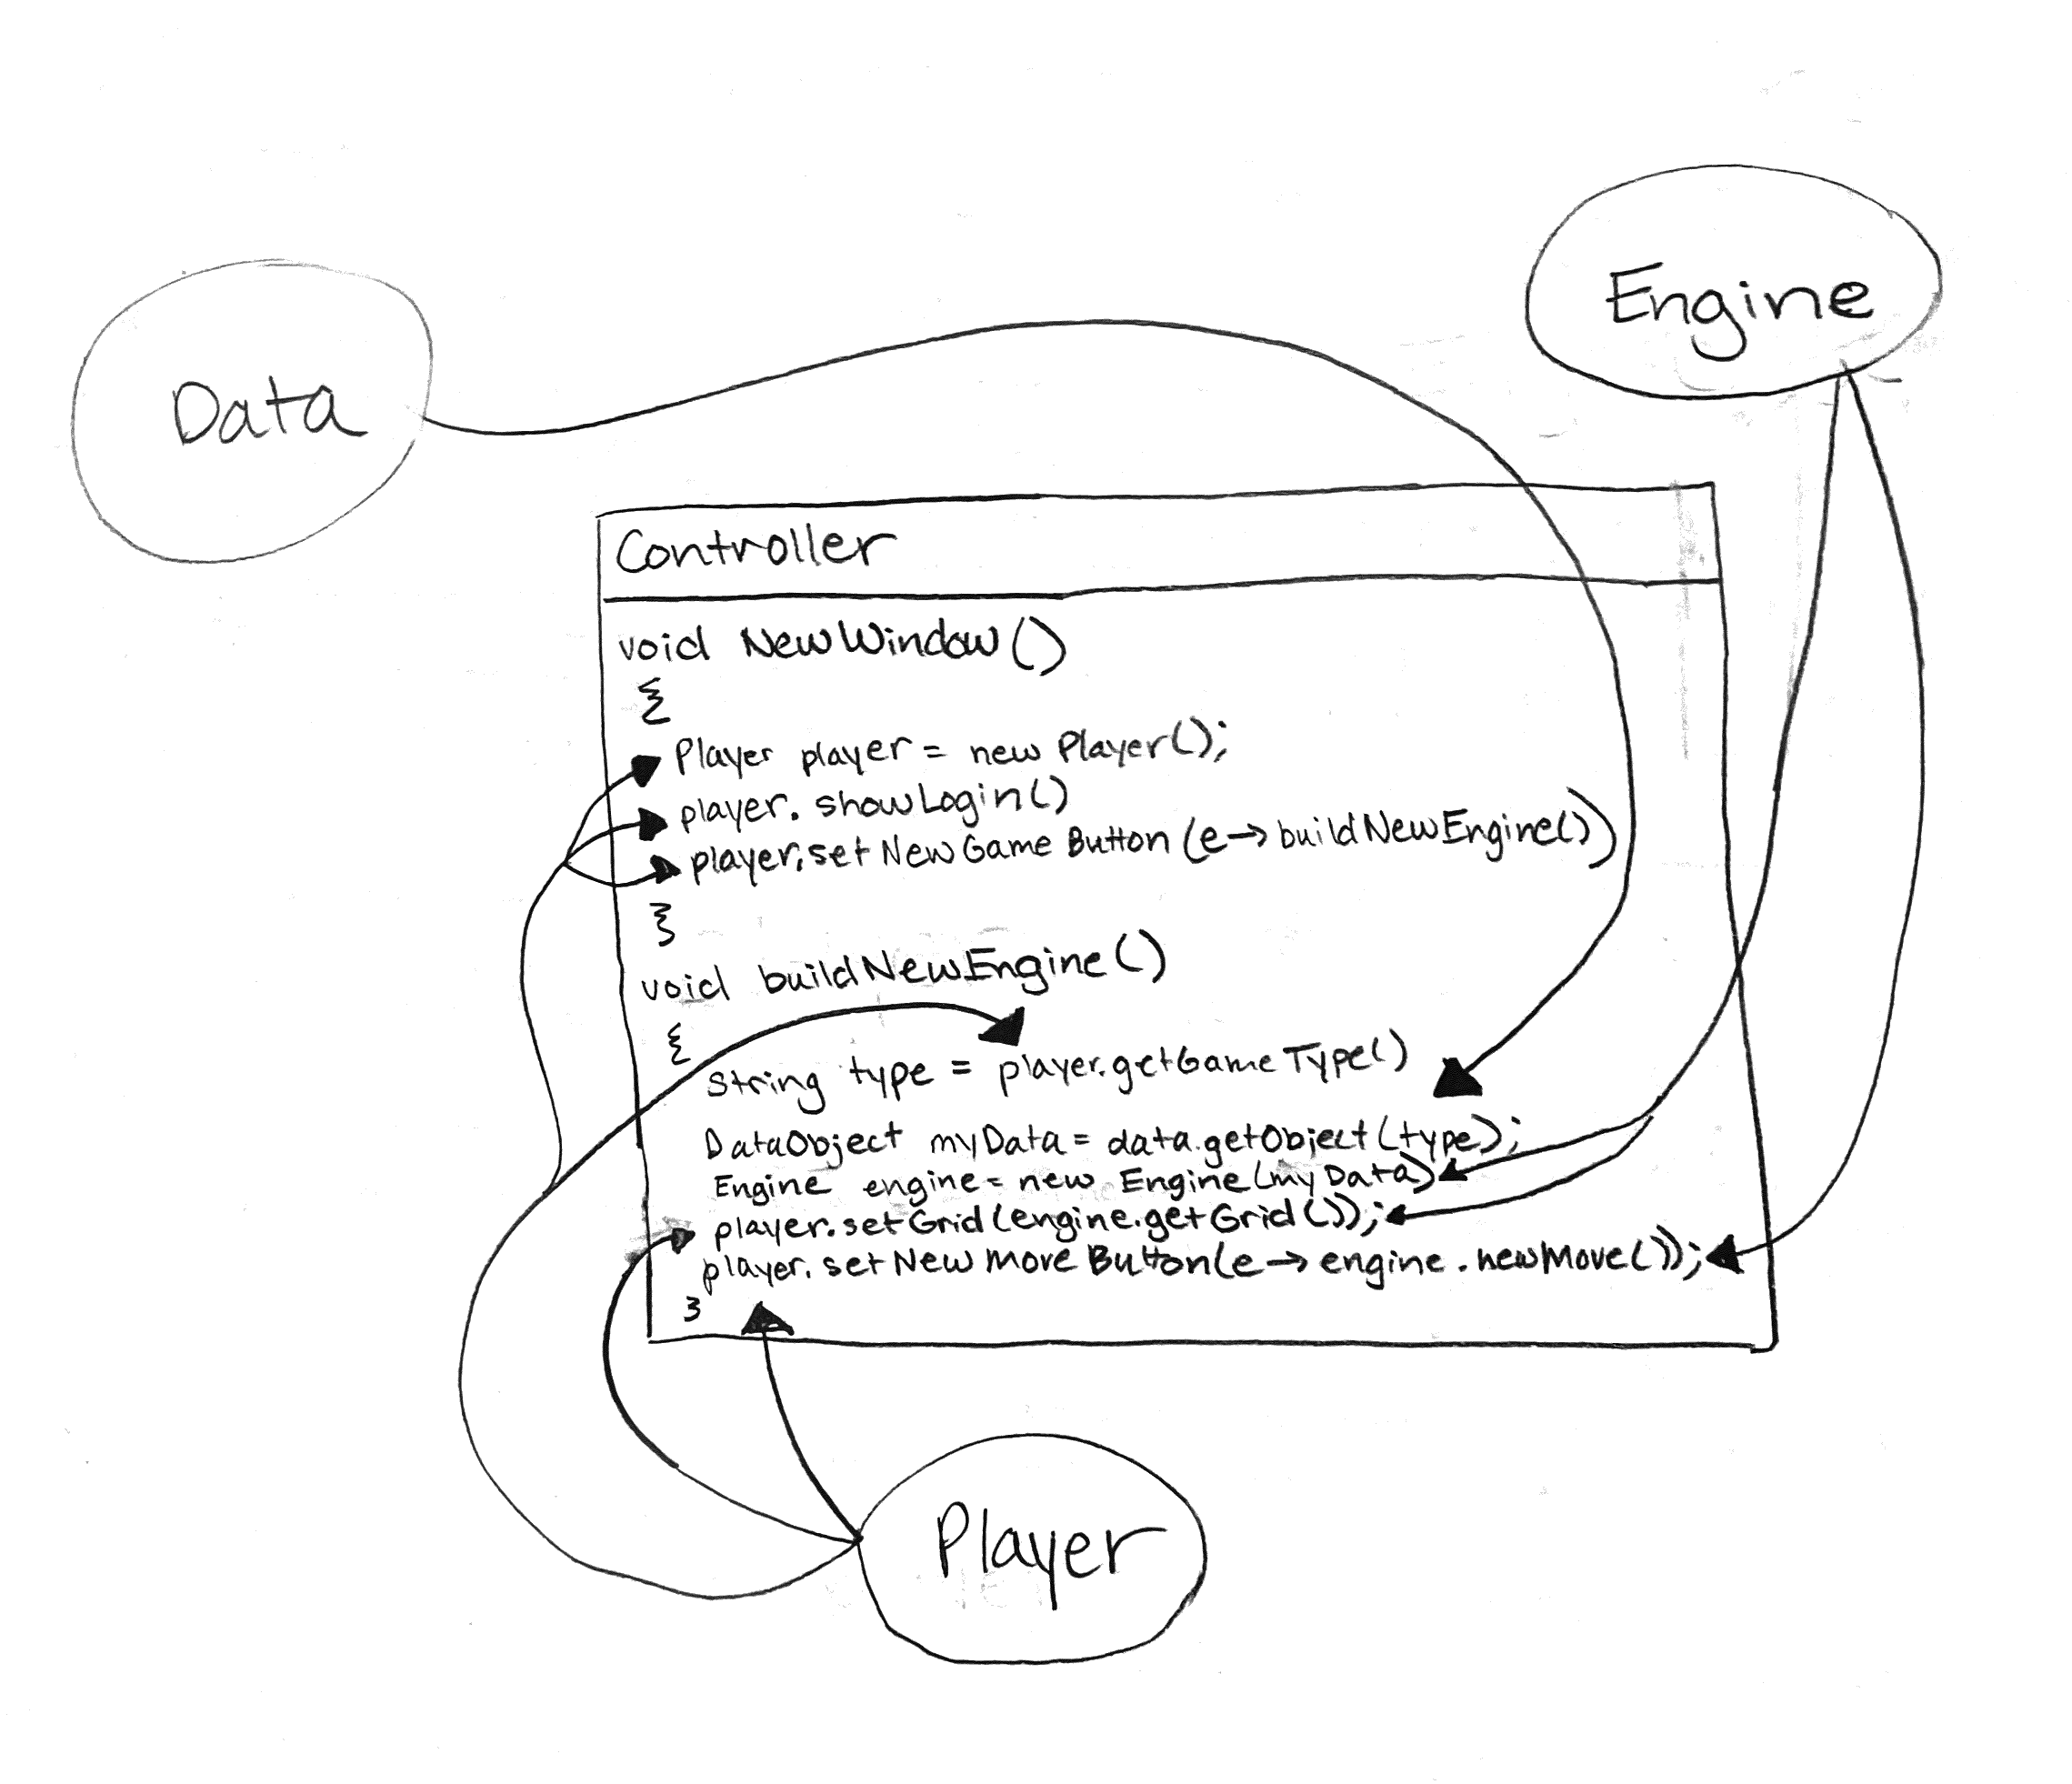 Engine
Data
Controller
void NewWindow()
{
Player player = new Player();
player.showLogin()
player.setNewGameButton(e→buildNewEngine())
}
void buildNewEngine()
{
string type = player.getGameType()
DataObject myData = data.getObject(type);
Engine engine = new Engine(myData)
player.setGrid(engine.getGrid());
player.setNewmoveButton(e→engine.newMove());
}
Player